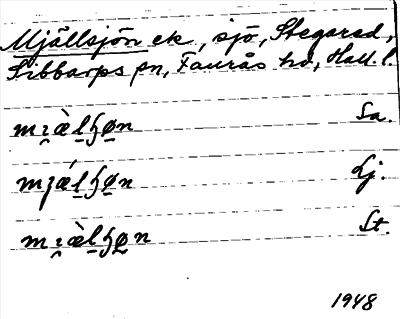 Mjällsjön ek, sjö, Stegared,
Sibbarps sn, Faurås hd, Hall. l.
mı̯æ̀lʃøn Sa.
mȷǽlʃøn Lj.
mı̯æ̀lʃøn St.
1948